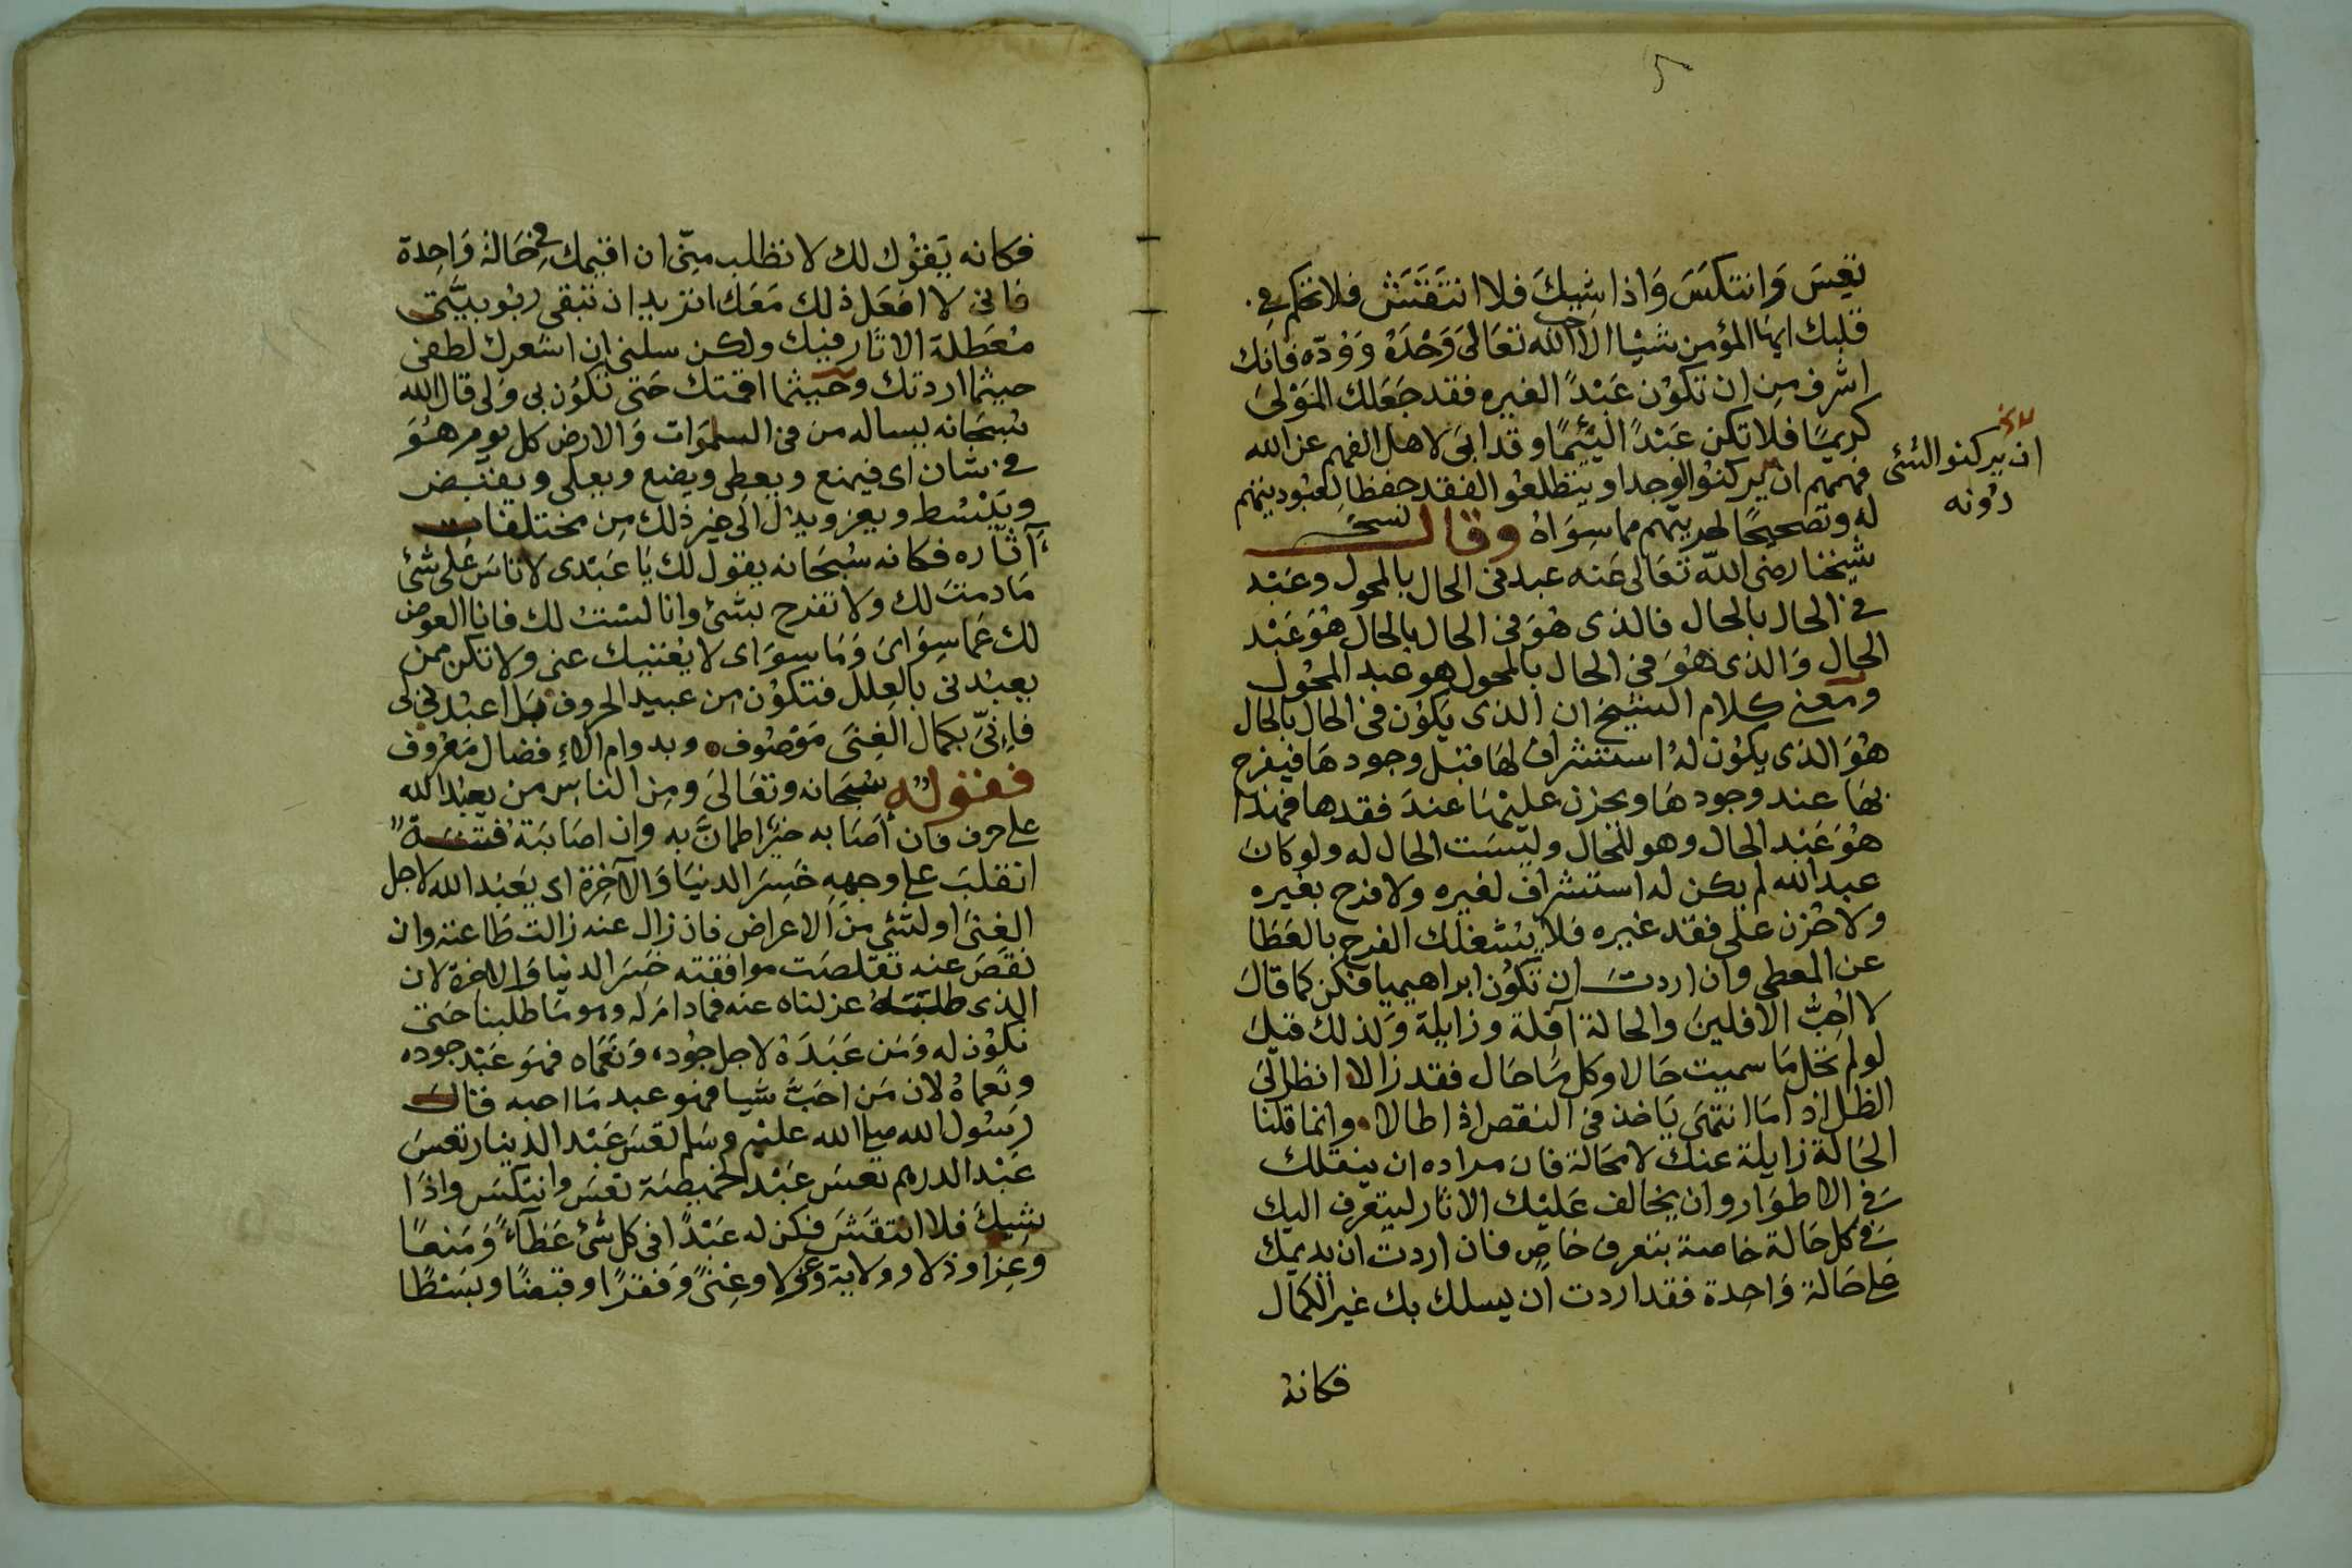 5
تعِسَ وَانتكسَ وَاذا شِيكَ فلا انتَقَتَشْ فلا تحكم في
قلبك ايها المؤمن شيْا الا حب الله تعَالىَ وَحْدَهُ وَوُدّه فانك
اشرف مِن ان تكوْن عَبْدًا لغيره فقد جَعَلك المَوْلىَ
كريمًا فلا تكن عَبْدًا لئيمًا وقد ابىَ لاهل الفهم عن الله
فهمهم ان يركنوُا لوجد او يتطلعُوا لفقد حفظا لعبُوديتهم
له وتصحيحًا لحريتهم مما سِوَاهُ وقال
ان يركنوا الشئ
دُونه
شيخنا رضى الله تعَالى عَنه عبد فى الحال بالمحول وعَبْد
في الحال بالحال فالذى هُوَ فى الحال بالحال هُوَ عَبْد
الحال وَالذى هُوَ فى الحال بالمحول هو عبد المحُول
ومعنى كلام الشيخ ان الذى يكوُن فى الحال بالحال
هُوَ الذى يكوُن لهُ استشراف لهَا قبْل وجودهَا فيفرح
بهَا عند وجودهَا ويحزن عَليْهَا عندَ فقدها فهذا
هُوَ عَبْد الحال وهو للحال وليْسَت الحال له ولو كان
عبد الله لم يكن له استشراف لغيره ولا فرح بغيره
ولا حُزن على فقد غيره فَلا يشغلك الفرح بالعَطا
عن المعطى وان اردت ان تكوُن ابراهيميا فكن كما قال
لا اُحِبُّ الافلينَ والحالة آفلة وزايلة وَلذلك قيل
لو لم تحُل مَا سميت حَالا وكل مَا حَال فقد زالا انظر الىَ
الظل اذا مَا انتهىَ يَاخذ فى النقص اذا طالا وانما قلنا
الحَالة زايلة عنك لا محَالة فان مراده ان ينقلك
في الاطوَار وان يخالف عَليْك الاثار ليتعرف اليك
في كل حَالة خاصة بتعرف خاصٍ فان اردت ان يديمك
على حَالة وَاحِدة فقد اردت ان يسلك بك غير الكمال
فكانهُ
فكانه يَقوُل لك لا تطلب مِنّى ان اقيمك في حَالة وَاحِدة
فانى لا افعَل ذلك مَعَك اتريد ان تبقى ربُوبيَّتى
مُعَطلة الاثار فيك ولكن سلنى ان اشعرك لطفى
حيثما اردتك وحيثما اقمتك حَتى تكوُن بى وَلى قال الله
سُبحَانه يساله من فى السموَات وَالارض كل يوم هوَ
في شان اى فيمنع ويعطى ويضع ويعلى ويقبض
ويَبْسُط ويعز ويذل الى غير ذلك مِن مختلفات
آثاره فكانه سُبحَانه يقول لك يَا عَبْدى لا تاسَ عَلى شئ
مَا دمتَ لك ولا تفرح بشئ وانا لسْتُ لك فانا العوض
لك عَما سِوَاىَ وَمَا سِوَاى لا يغنيك عنى ولا تكن ممن
يعبُدنى بالعِلل فتكوْن من عبيد الحروف بَل اعبُدنى لى
فاِنىّ بكمال الغِنىَ مَوْصُوف وبدوام الافضال مَعْروف
فقوله سُبحَانه وتعَالىَ ومِن الناسِ من يعبُد الله
على حرف فان أصَابه خيرٌ اطمانَّ به وان اصَابَتهُ فتنة
انقلبَ على وجههِ خَسِرَ الدنيَا وَالآخِرَة اى يعَبْد الله لاجل
الغِنىَ او لشئ مِنَ الاعراض فان زال عنه زالت طَاعته وان
نقصَ عنه تقلصَت موافقته خَسِرَ الدنيا وَالاخِرة لان
الذى طلبَهُ عزلناه عنه فما دام له وهو مَا طلبنا حَتى
نكوُن له وَمَن عَبَدَهُ لاجل جُوُده وَنعَماه فهوَ عَبْد جوده
ونعماهُ لان مَن احَبَّ شيا فهو عبد مَا احبه قال
رسُول الله صلى الله عليْه وسَلم تعَسَ عَبْد الدينار تعسَ
عَبْد الدرهم تعسَ عَبْد الخميصَة تعسَ وانتكسَ واذا
شِيكَ فلا انتقَشَ فكن له عَبْدًا فى كل شئ عَطَآءً وَمَنعًا
وعِزا وذلا وولاية وعزلا وغِنىً وَفقرًا وقبضًا وبسْطًا